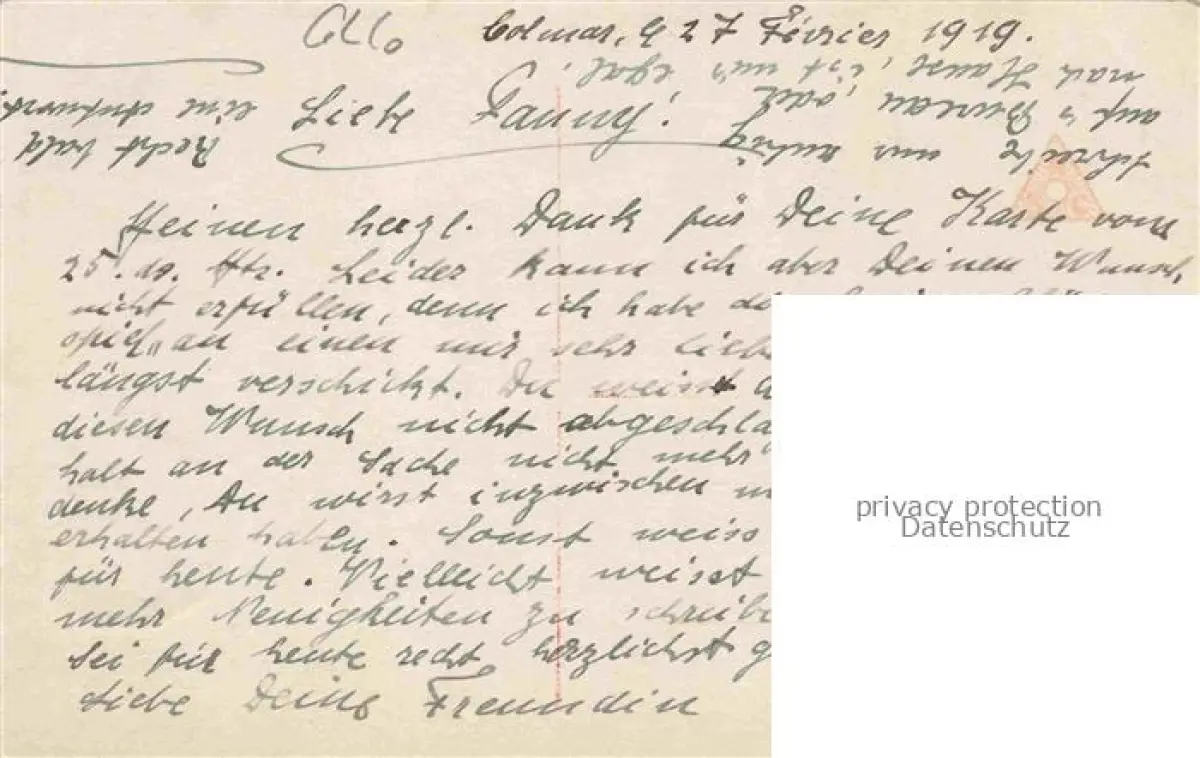 Colmar, 27 Février 1919.
Liebe Fanny!
Meinen herzl. Dank für Deine Karte vom
25. ds. Mts. Leider kann ich aber Deinen Wunsch
nicht erfüllen, denn ich habe
spiel" an einen mir sehr liebe
längst verschickt. Du weisst
diesen Wunsch nicht abgeschla
halt an der Sache nicht mehr
denke, Du wirst inzwischen
erhalten haben. Sonst weiss
für heute. Vielleicht weisst
mehr Neuigkeiten zu schreibe
Sei für heute recht herzlichst g
Liebe Deine Freundin
Recht bald
eine Antwort
schreibe nur ruhig
auf's Bureau, oder
nach Hause, ist mir egal!
privacy protection
Datenschutz